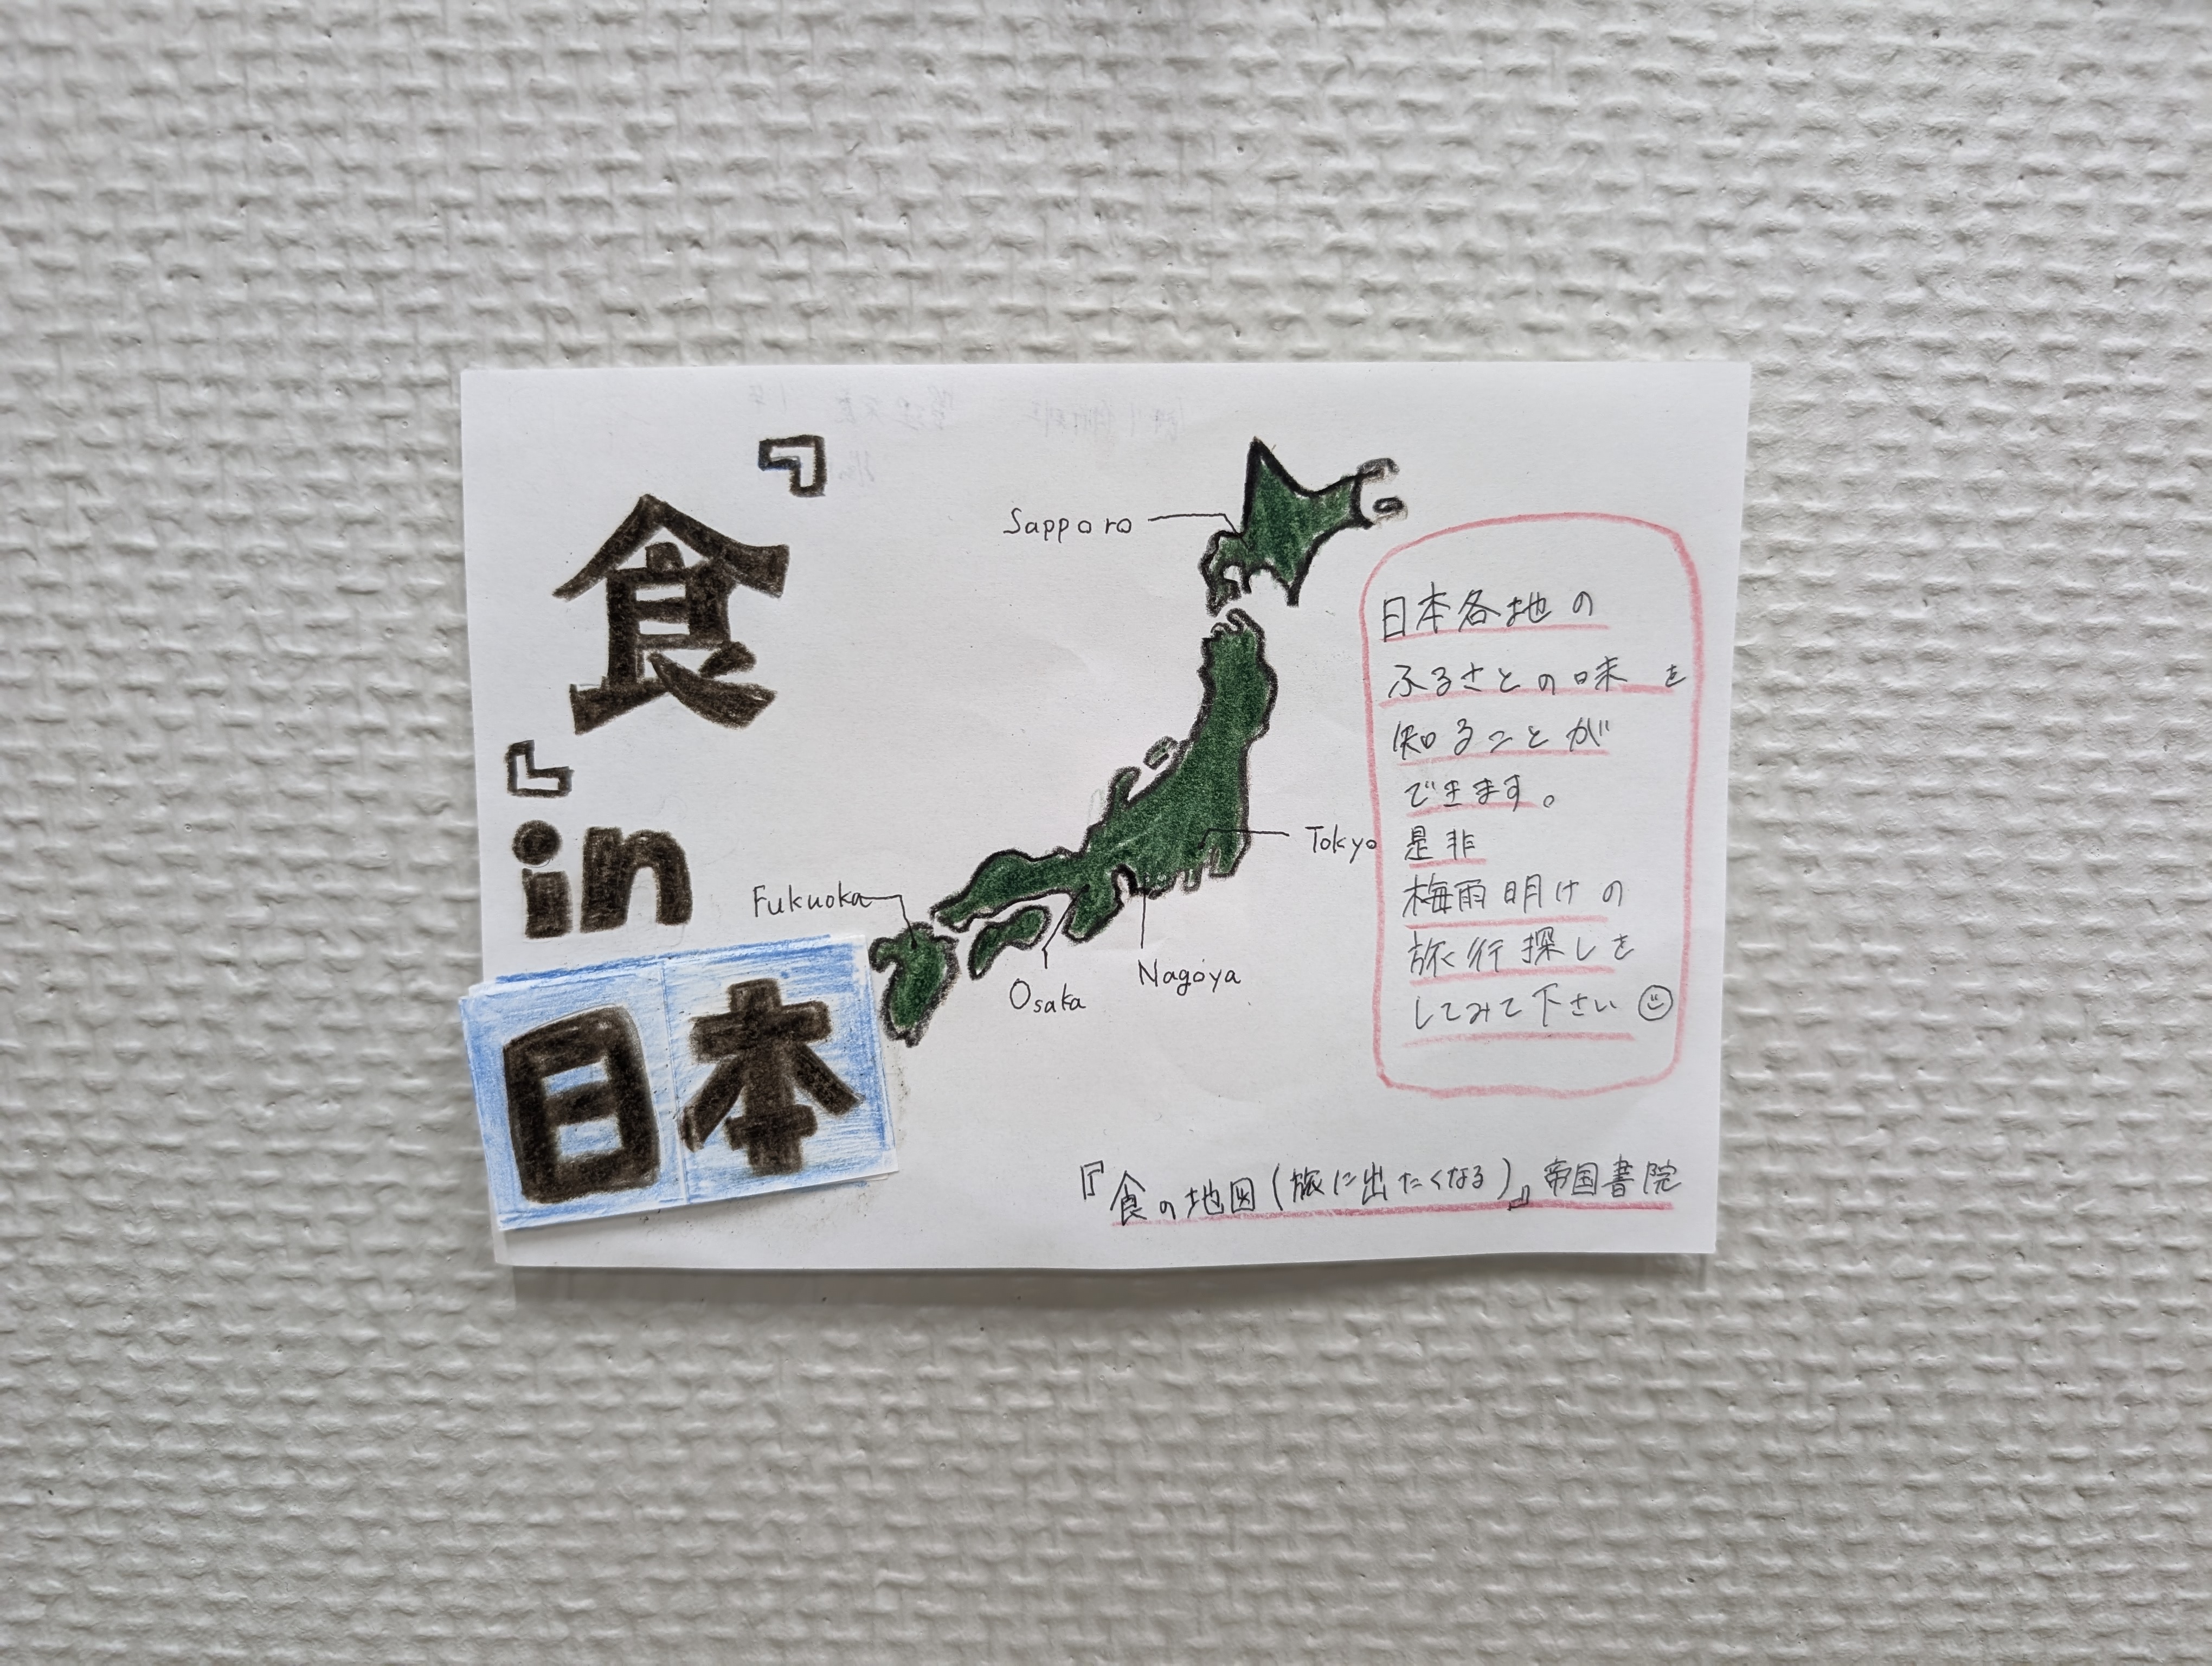 『食』
in
日本
Sapporo
Tokyo
Fukuoka
Osaka
Nagoya
日本各地の
ふるさとの味を
知ることが
できます。
是非
梅雨明けの
旅行探しを
してみて下さい
『食の地図(旅に出たくなる)』帝国書院